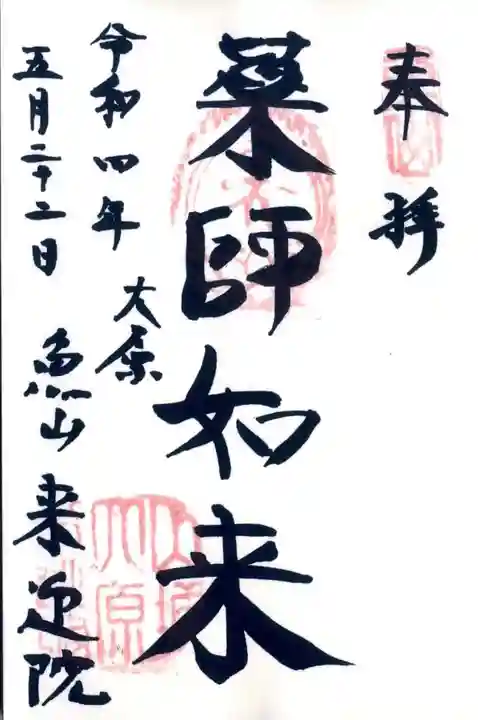 奉拝
薬師如来
大原
魚山 来迎院
令和四年
五月二十二日